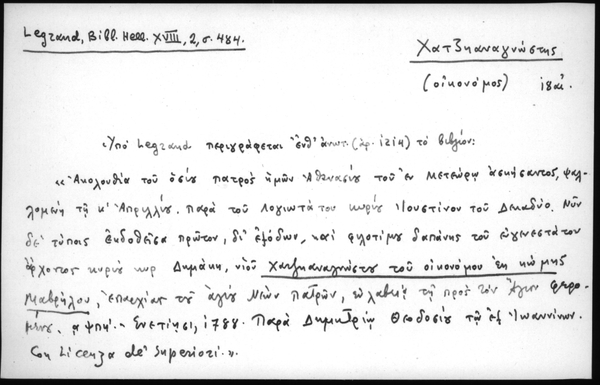 Legrand, Bibl. Hell. XVIII, 2, σ. 484.
Χατζηαναγνώστης
(οἰκονόμος) ιθαʹ.
«Ὑπό Legrand περιγράφεται ἔνθ' ἀνωτ. (ἀρ. 1214) τό βιβλίον:
«Ἀκολουθία τοῦ ὁσίου πατρός ἡμῶν Ἀθανασίου τοῦ ἐν Μετεώρῳ ἀσκήσαντος, ψαλ-
λομένη τῇ κ' Ἀπριλλίου. Παρά τοῦ λογιωτάτου κυρίου Ἰουστίνου τοῦ Δεκαδύο. Νῦν
δέ τύποις ἐκδοθεῖσα πρῶτον, δι' ἐξόδων, καί φιλοτίμου δαπάνης τοῦ εὐγενεστάτου
ἄρχοντος κυρίου κυρ Δημάκη, υἱοῦ Χατζηαναγνώστου τοῦ οἰκονόμου ἐκ κώμης
Μαβρήλου, ἐπαρχίας τῶν Νέων Πατρῶν, εὐλαβείᾳ τῇ πρός τόν Ἅγιον φερο-
μένου. ͵αψπηʹ. - Ἐνετίησι, 1788. Παρά Δημητρίῳ Θεοδοσίου τῷ ἐξ Ἰωαννίνων.
Con Licenza de' Superiori.».